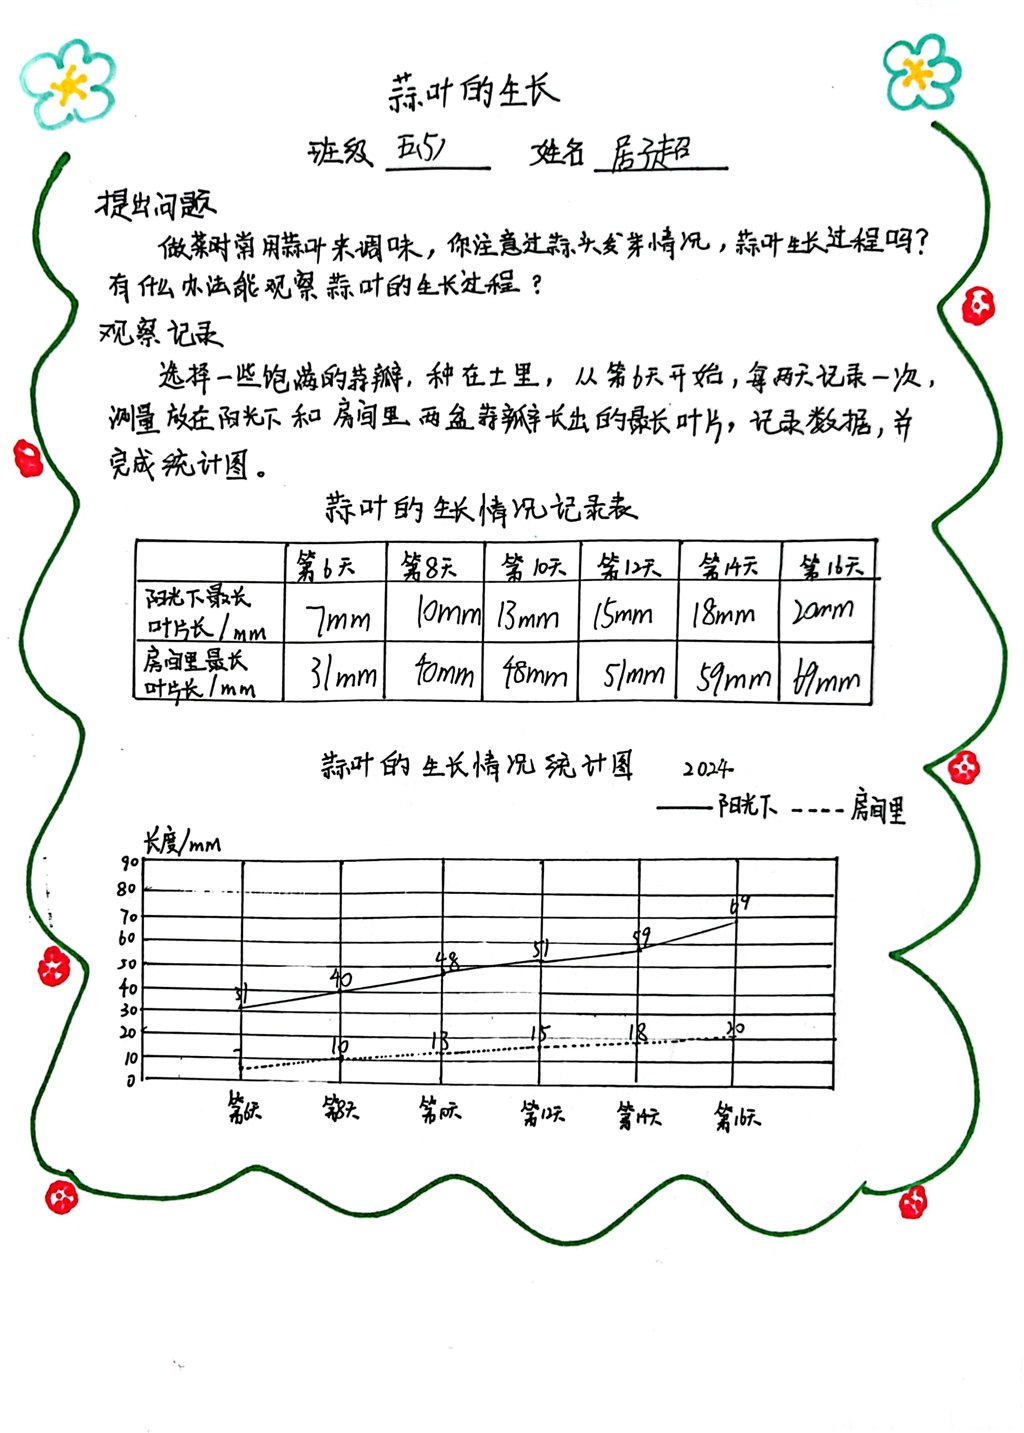 蒜叶的生长
班级 五(5) 姓名 居子超
提出问题
做菜时常用蒜叶来调味，你注意过蒜头发芽情况，蒜叶生长过程吗？
有什么办法能观察蒜叶的生长过程？
观察记录
选择一些饱满的蒜瓣，种在土里，从第6天开始，每两天记录一次，
测量放在阳光下和房间里两盆蒜瓣长出的最长叶片，记录数据，并
完成统计图。
蒜叶的生长情况记录表
第6天 第8天 第10天 第12天 第14天 第16天
阳光下最长
叶片长/mm 7mm 10mm 13mm 15mm 18mm 20mm
房间里最长
叶片长/mm 31mm 40mm 48mm 51mm 59mm 69mm
蒜叶的生长情况统计图 2024
阳光下 房间里
长度/mm
90
80
70 69
60 59
50 48 51
40 40
30 31
20 15 18 20
10 7 10 13
0
第6天 第8天 第10天 第12天 第14天 第16天